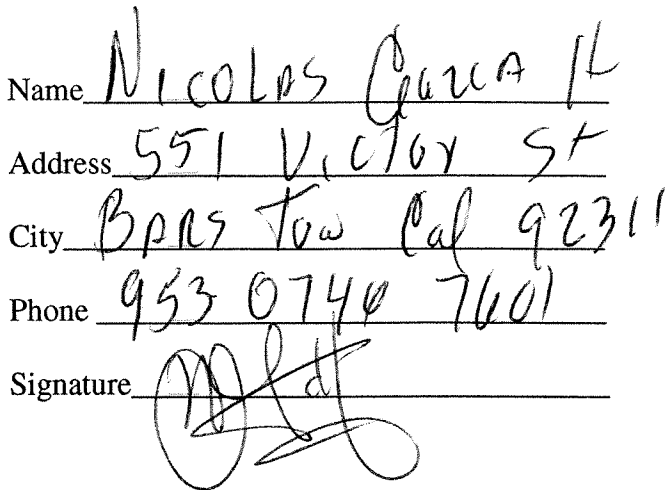 Name Nicolas Garza H
Address 551 Victor St
City Bars Tow Cal 92311
Phone 953 0740 7601
Signature